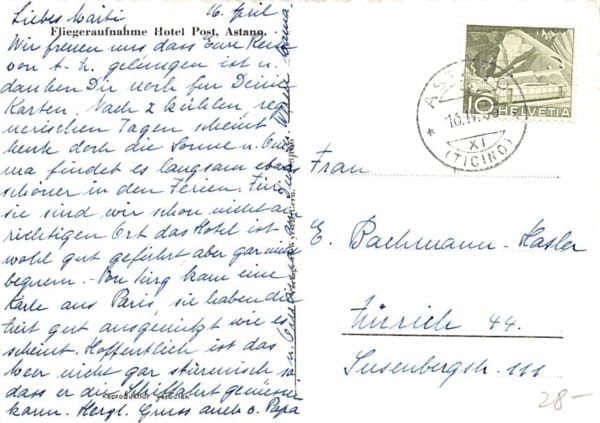 16. April
Liebes Maiti
Fliegeraufnahme Hotel Post, Astano.
Wir freuen uns dass Eure Reise
von A-Z gelungen ist u.
danken Dir noch für Deine
Karten. Nach 2 kühlen reg
nerischen Tagen scheint
heute doch die Sonne u. Oma
ma findet es langsam etwas
schöner in den Ferien. Für
sie sind wir schon nicht am
richtigen Ort das Hotel ist
wohl gut geführt aber gar nicht
bequem. - Von kam eine
Karte aus Paris, sie haben die
Zeit gut ausgenützt wie es
scheint. Hoffentlich ist das
Meer nicht gar stürmisch so
dass er die Schiffahrt geniessen
kann. Herzl. Gruss auch v. Papa
Reproduktion verboten
HELVETIA
10
ASTANO
16.IV.
XI
(TICINO)
Frau
E. Bachmann-Hasler
Zürich 44.
Susenbergstr. 111
28-